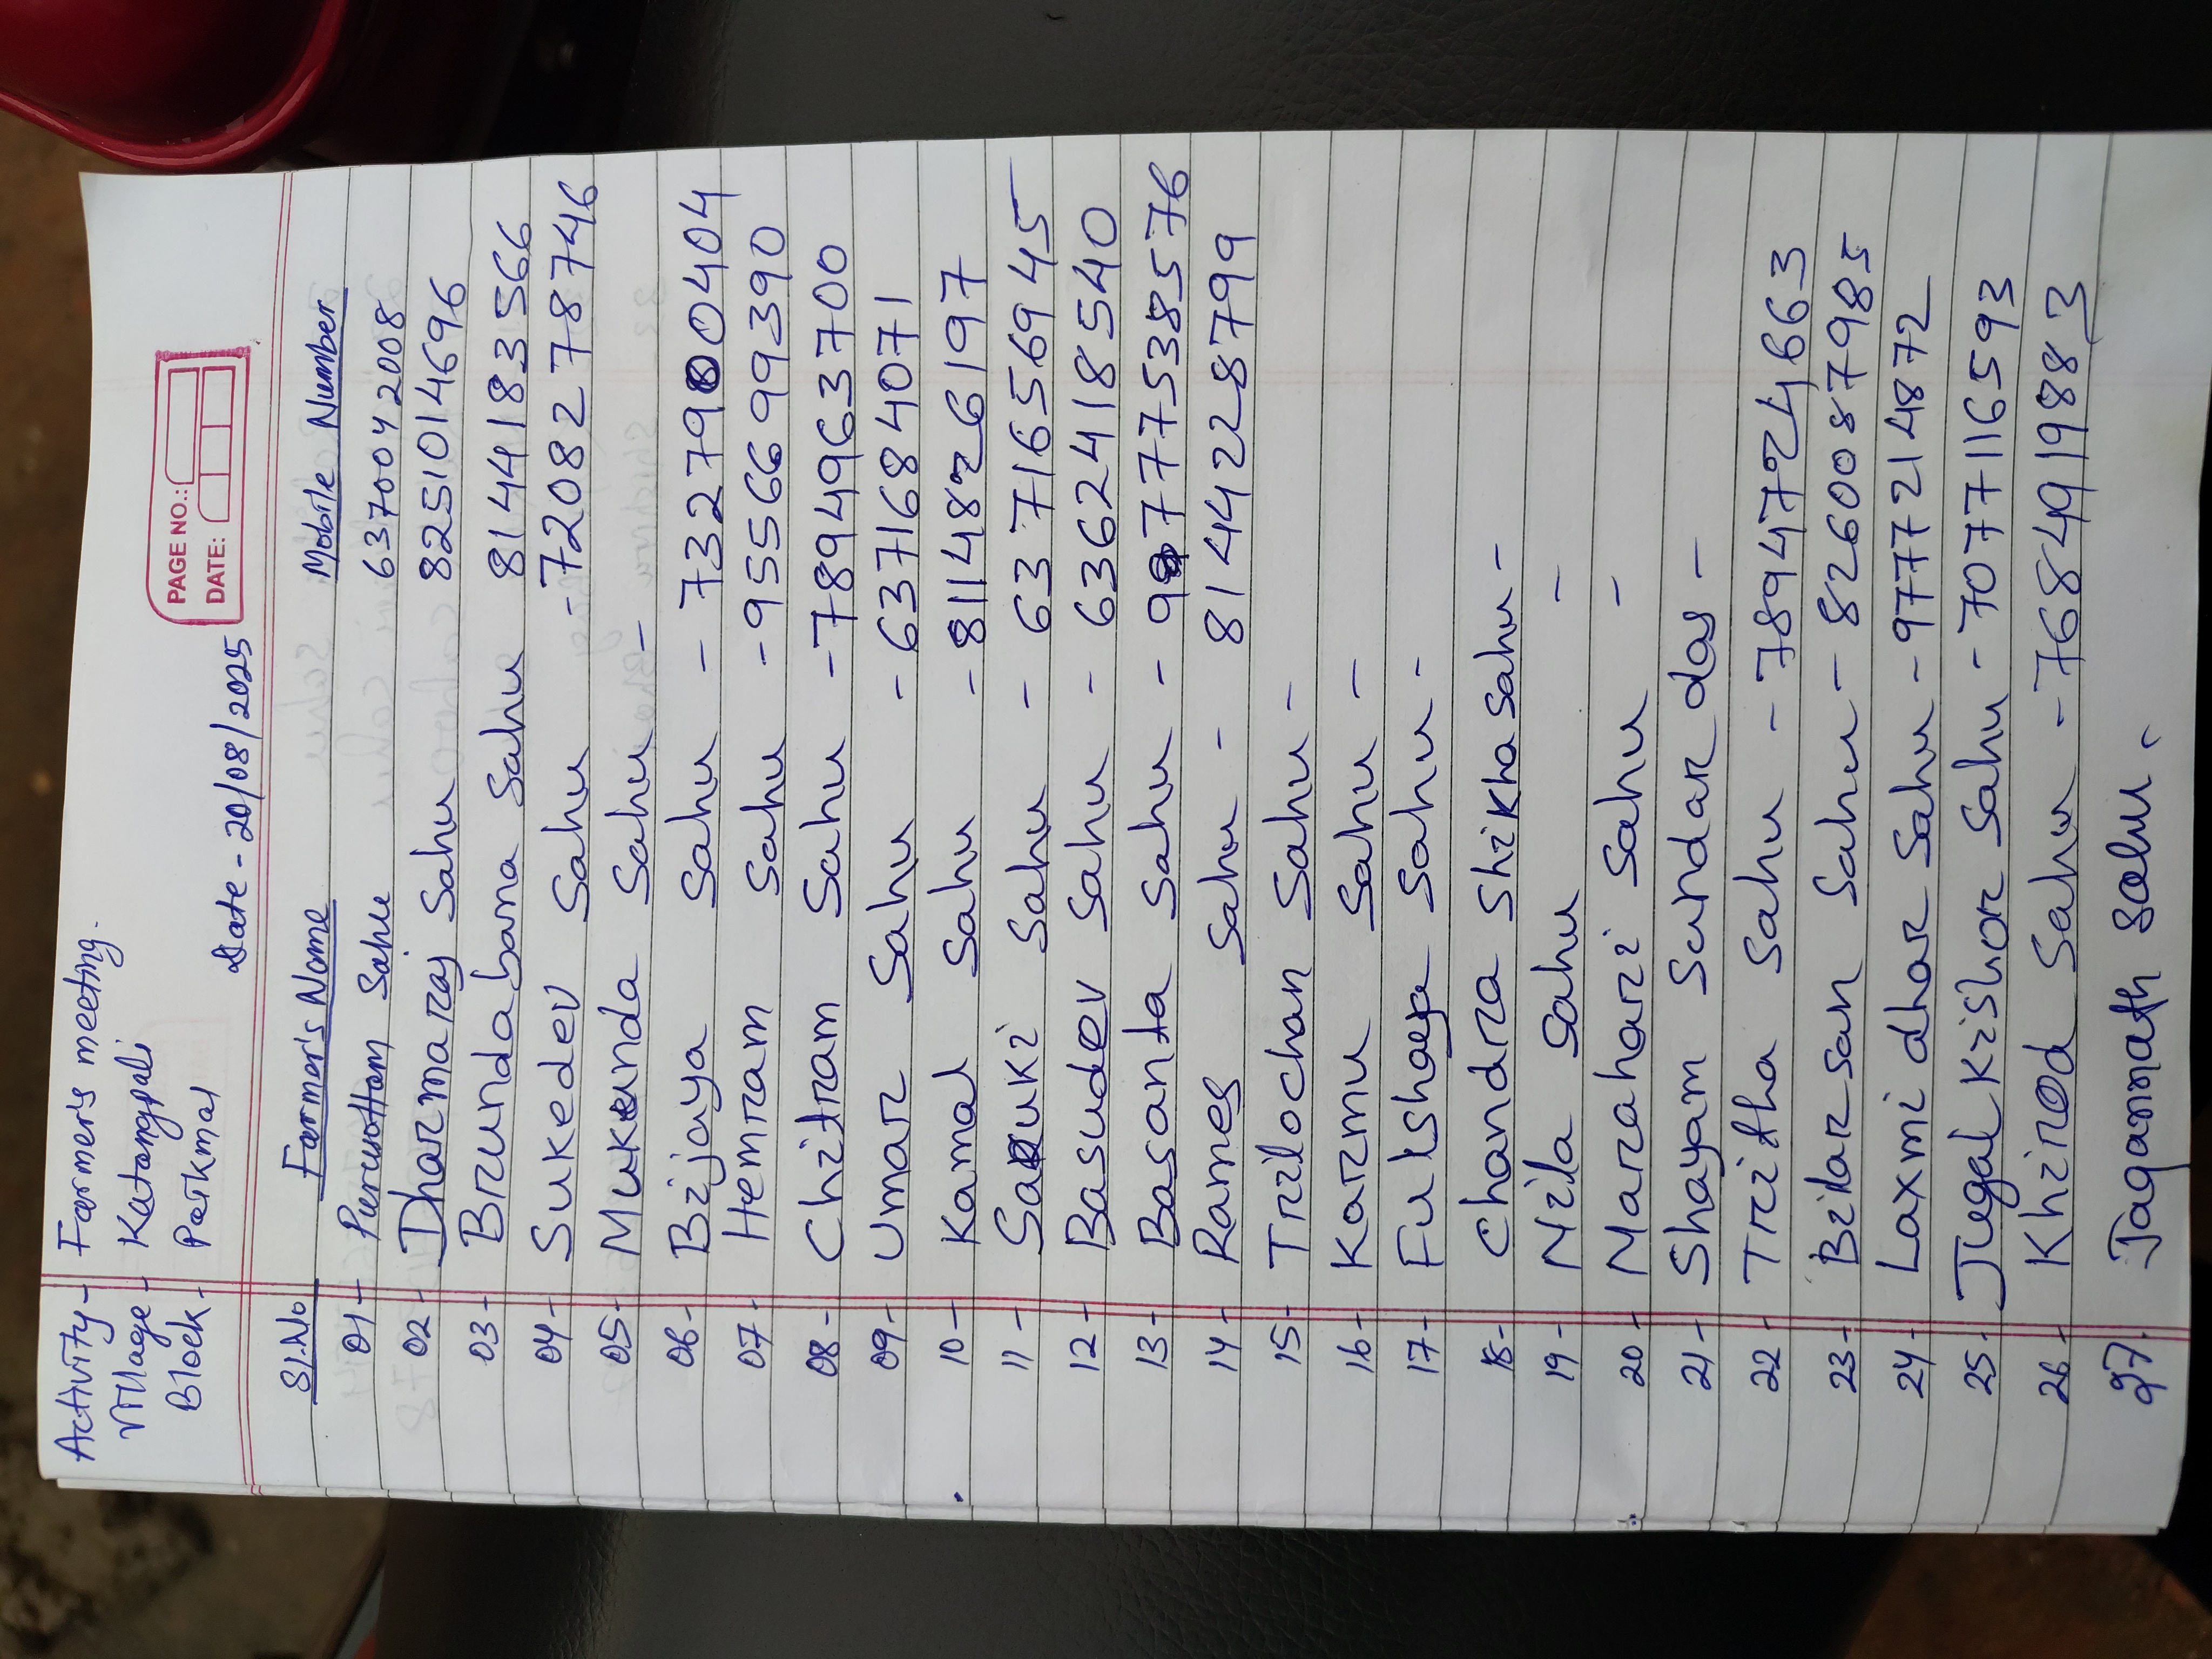 PAGE NO.:
DATE:
Activity - Farmer's meeting.
Village - Katangpali
Block - Paikmal
Date - 20/08/2025
Sl.No Farmer's Name Mobile Number
01 - Purusottam Sahu 6370042008
02 - Dharmaraj Sahu 8251014696
03 - Brundabana Sahu 8144183566
04 - Sukedev Sahu - 7208278746
05 - Mukunda Sahu -
06 - Bijaya Sahu - 7327900404
07 - Hemram Sahu - 9556699390
08 - Chitram Sahu - 7894963700
09 - Umar Sahu - 6371684071
10 - Kamal Sahu - 8114826197
11 - Saruki Sahu - 6371656945
12 - Basudev Sahu - 6362418540
13 - Basanta Sahu - 9777538576
14 - Rames Sahu - 8144228799
15 - Trilochan Sahu -
16 - Karmu Sahu -
17 - Fulshaya Sahu -
18 - Chandra Shikha Sahu -
19 - Nila Sahu -
20 - Narahari Sahu -
21 - Shyam Sundar das -
22 - Tritha Sahu - 7894724663
23 - Bilarsan Sahu - 8260087985
24 - Laxmi dhar Sahu - 9777214872
25 - Jugal Kishor Sahu - 7077116593
26 - Khirod Sahu - 7684919883
27. Jagannath Sahu.